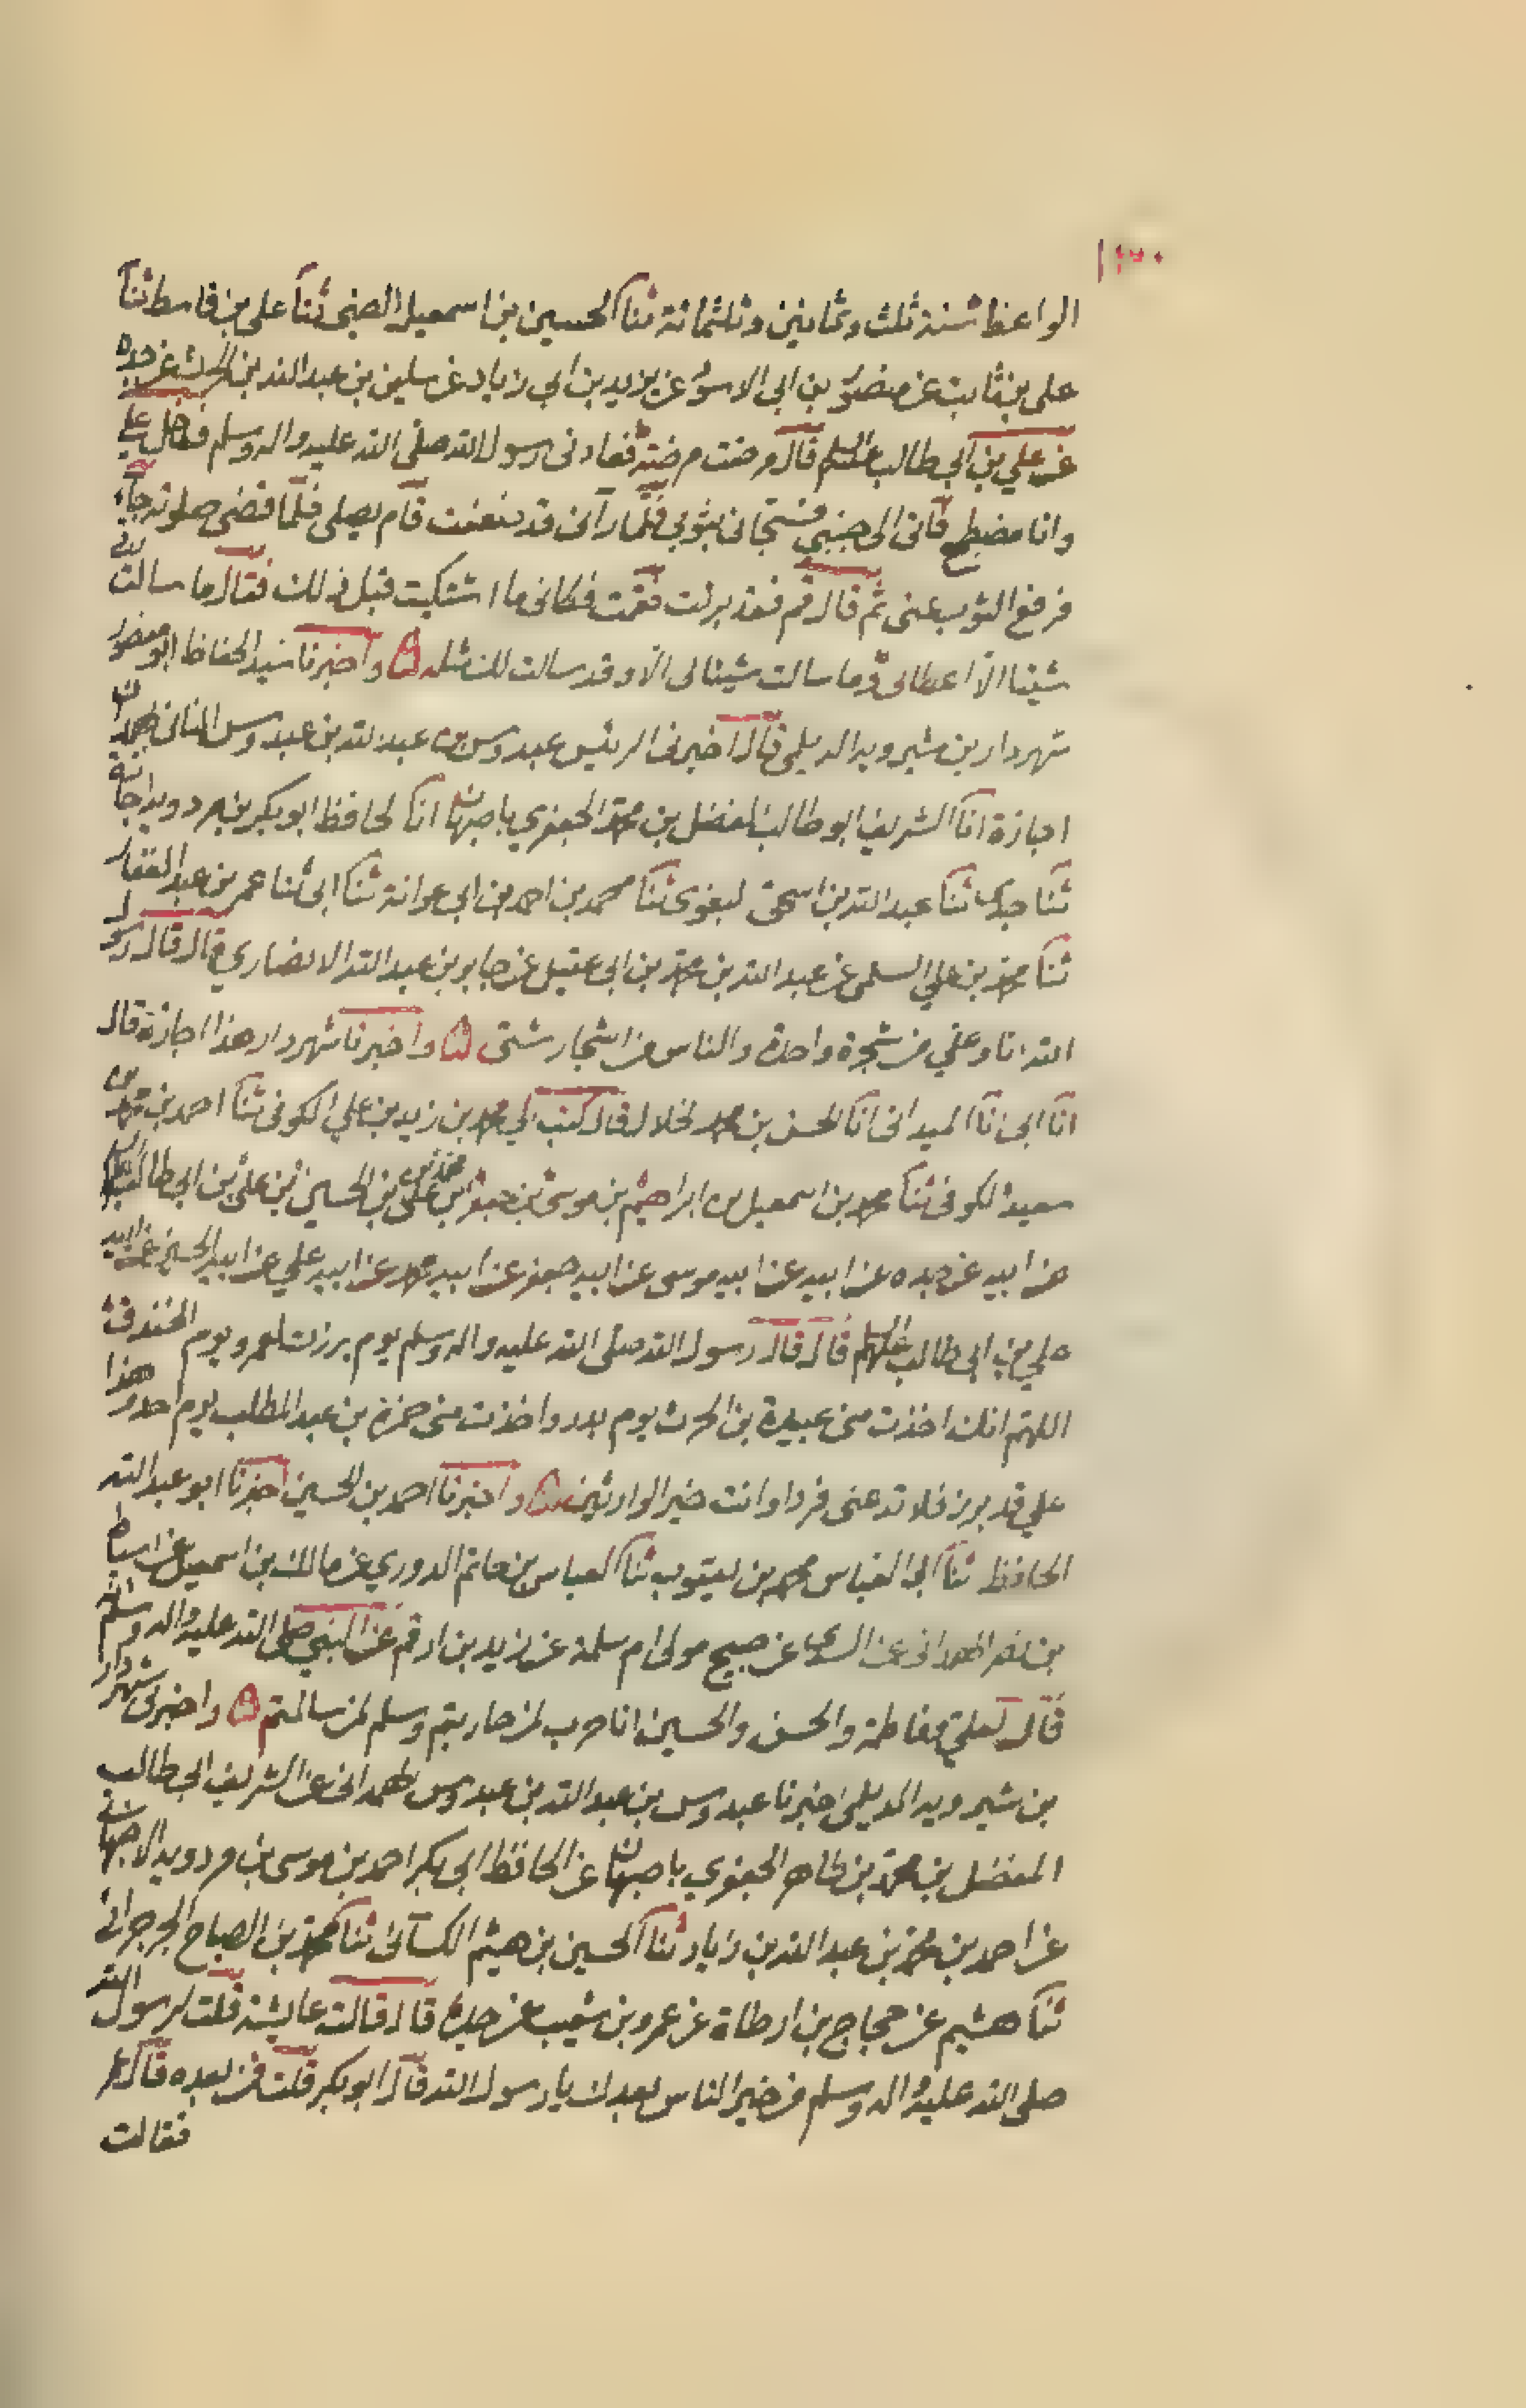 ١٣٠
الواعظ سنة ثلث وثمانين وثلثمائة ثنا الحسين بن اسمعيل الضبي ثنا علي بن قاسط ثنا
علي بن ثابت عن منصور بن ابي الاسود عن يزيد بن ابي زياد عن سليمن بن عبد الله بن الحرث عن جده
عن علي بن ابي طالب عليه السلم قال مرضت مرضة فعادني رسول الله صلى الله عليه واله وسلم فدخل علي
وانا مضطجع فاتى الى جنبي فسجاني بثوبه فلما رآني قد ضعفت قام يصلي فلما قضى صلوته جاء
فرفع الثوب عني ثم قال قم فقد برئت فقمت فكاني ما اشتكيت قبل ذلك فقال ما سالت ربي
شيئا الا اعطاني وما سالت شيئا لي الا وقد سالت لك مثله واخبرنا سيد الحفاظ ابو منصور
شهردار بن شيرويه الديلمي قال اخبرنا الرئيس عبدوس بن عبد الله بن عبدوس التاني بهمدان
اجازة انا الشريف ابو طالب المفضل بن محمد الجعفري باصبهان انا الحافظ ابو بكر بن مردويه اجازة
ثنا جدي ثنا عبد الله بن اسحق البغوي ثنا محمد بن احمد بن ابي عوانة ثنا ابي ثنا عمر بن عبد الغفار
ثنا محمد بن علي السلمي عن عبد الله بن محمد بن ابي عقيل عن جابر بن عبد الله الانصاري قال قال رسول
الله انا وعلي من شجرة واحدة والناس من اشجار شتى واخبرنا شهردار هذا اجازة قال
انا ابي انا الميداني انا الحسن بن محمد الخلال قال كتب الي محمد بن زيد بن علي الكوفي ثنا احمد بن محمد بن
سعيد الكوفي ثنا محمد بن اسمعيل بن ابراهيم بن موسى بن جعفر بن محمد بن علي بن الحسين بن علي بن ابي طالب عليهم السلم
عن ابيه عن جده عن ابيه عن ابيه موسى عن ابيه جعفر عن ابيه محمد عن ابيه علي عن ابيه الحسين عن ابيه
علي بن ابي طالب عليهم السلم قال قال رسول الله صلى الله عليه واله وسلم يوم برزت لعمرو يوم الخندق
اللهم انك اخذت مني عبيدة بن الحرث يوم بدر واخذت مني حمزة بن عبد المطلب يوم احد وهذا
علي قد برز فلا تدعني فردا وانت خير الوارثين واخبرنا احمد بن الحسين اخبرنا ابو عبد الله
الحافظ ثنا ابي العباس محمد بن يعقوب ثنا العباس بن حاتم الدوري عن مالك بن اسمعيل عن اسباط
بن نصر الهمداني عن السدي عن صبيح مولى ام سلمة عن زيد بن ارقم عن النبي صلى الله عليه واله وسلم انه
قال لعلي وفاطمة والحسن والحسين انا حرب لمن حاربتم وسلم لمن سالمتم واخبرني شهردار
بن شيرويه الديلمي اخبرنا عبدوس بن عبد الله بن عبدوس الهمداني عن الشريف ابي طالب
المفضل بن محمد بن طاهر الجعفري باصبهان عن الحافظ ابي بكر احمد بن موسى بن مردويه الاصبهاني
عن احمد بن محمد بن عبد الله بن زياد ثنا الحسين بن هيثم الكسائي ثنا محمد بن الصباح الجرجرائي
ثنا هشيم عن حجاج بن ارطاة عن عمرو بن شعيب عن جده قال قالت عايشة قلت لرسول الله
صلى الله عليه واله وسلم من خير الناس بعدك يا رسول الله قال ابو بكر قلت فمن بعده قال عمر
فقالت